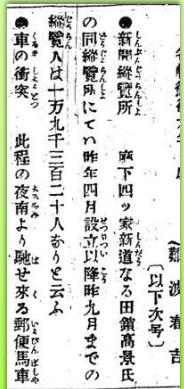 難波春吉
〔以下次号〕
●新聞縦覧所　府下四ツ家新道なる田鎖高景氏
の同縦覧所にてハ昨年四月設立以降昨九月までの
縦覧人は十万九千三百二十人なりと云ふ
●車の衝突　此程の夜南より馳せ来る郵便馬車